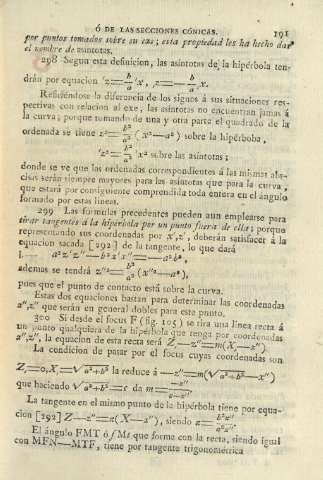 Ó DE LAS SECCIONES CÓNICAS. 191
por puntos tomados sobre su eas; esta propiedad les ha hecho dar
el nombre de asintotas.
298 Segun esta definicion, las asíntotas de la hipérbola ten-
drán por equacion 'z=b/a 'x, z=-b/a x.
Refiriéndose la diferencia de los signos á sus situaciones res-
pectivas con relacion al exe, las asíntotas no encuentran jamas á
la curva; porque tomando de una y otra parte el quadrado de la
ordenada se tiene z²=b²/a² (x²-a²) sobre la hipérboba,
'z²=b²/a² x² sobre las asíntotas;
donde se ve que las ordenadas correspondientes á las mismas abs-
cisas serán siempre mayores para las asíntotas que para la curva,
que estará por consiguiente comprendida toda entera en el ángulo
formado por estas líneas.
299 Las formulas precedentes pueden aun emplearse para
tirar tangentes á la hipérbola por un punto fuera de ella; porque
representando sus coordenadas por x',z', deberán satisfacer á la
equacion sacada [292] de la tangente, lo que dará
a²z'z''-b²x'x''=-a²b²,
ademas se tendrá z''²=b²/a² (x''²-a²),
pues que el punto de contacto está sobre la curva.
Estas dos equaciones bastan para determinar las coordenadas
x'',z'' que serán en general dobles para este punto.
300 Si desde el focus F (fig. 105) se tira una línea recta á
un punto qualquiera de la hipérbola que tenga por coordenadas
x'',z'', la equacion de esta recta será Z-z''=m(X-x'')
La condicion de pasar por el focus cuyas coordenadas son
Z,=0,X,=√a²+b² la reduce á -z''=m(√a²+b²-x'')
que haciendo √a²+b²=c da m=-z''/c-x''.
La tangente en el mismo punto de la hipérbola tiene por equa-
cion [292] Z-z''=a(X-x''), siendo a=b²x''/a²z''
El ángulo FMT ó fMt que forma con la recta, siendo igual
con MFN-MTF, tiene por tangente trigonométrica